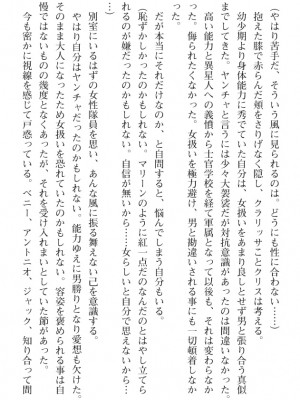 （やはり苦手だ、そういう風に見られるのは。どうにも性に合わない……）
抱えた膝で赤らんだ頬をさりげなく隠し、クラリッサことクリスは考える。
幼少期より身体能力に秀でていた自分は、女扱いをあまり良しとせず男と張り合う真似
までしてきた。ヤンチャと言うには少々大袈裟だが対抗意識があったのは間違いなかった。
高い能力と異星人への義憤から士官学校を経て軍属となって以後も、それは変わらなか
った。侮られたくなかった。女扱いを極力避け、男と勘違いされる事にも一切頓着しなか
った。
だが本当にそれだけなのか、と自問すると、悩んでしまう自分もいる。
（恥ずかしかったのかもしれない。マリーンのように紅一点だのなんだのとはやし立てら
れるのが嫌だったのかもしれない。自信が無いから……女らしいと自分で思えないから…
別室にいるはずの女性隊員を思い、あんな風に振る舞えない己を意識する。
やはり自分はヤンチャだったのかもしれない。能力ゆえに男勝りとなり愛想も欠けた。
そのまま大人になったため女扱いを恐れていたのかもしれない。容姿を褒められる事は自
慢ではないものの幾度となくあったが、それを受け入れまいとしていた節があった。
今も密かに視線を感じて戸惑っている。ベニー、アントニオ、ジャック、知り合って間